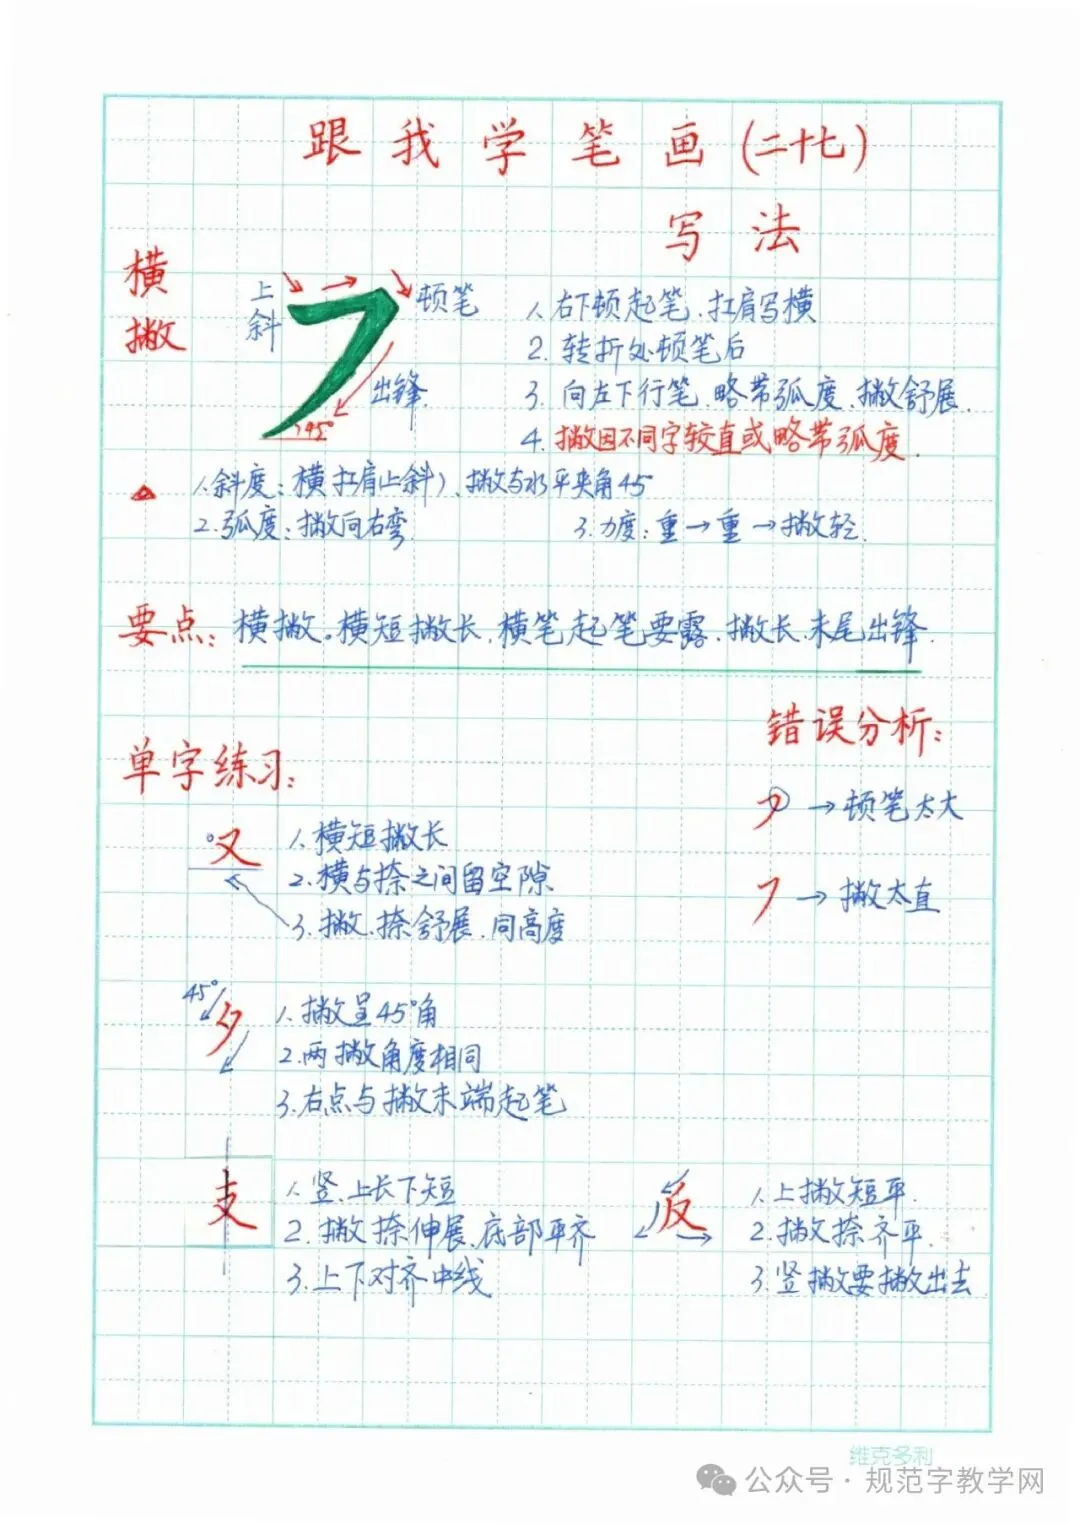 跟我学笔画(二十七)
写法
横撇
上斜
顿笔
出锋
45°
1.右下顿起笔、扛肩写横
2.转折处顿笔后
3.向左下行笔、略带弧度、撇舒展.
4.撇因不同字较直或略带弧度.
1.斜度:横扛肩(上斜)、撇与水平夹角45°
2.弧度:撇向右弯
3.力度:重→重→撇轻.
要点:横撇。横短撇长、横笔起笔要露、撇长、末尾出锋.
错误分析:
→顿笔太大
→撇太直
单字练习:
又
1.横短撇长
2.横与捺之间留空隙
3.撇、捺舒展、同高度
45°
夕
1.撇呈45°角
2.两撇角度相同
3.右点与撇末端起笔
支
1.竖、上长下短
2.撇捺伸展、底部平齐
3.上下对齐中线
反
1.上撇短平.
2.撇捺齐平.
3.竖撇要撇出去
维克多利
公众号·规范字教学网